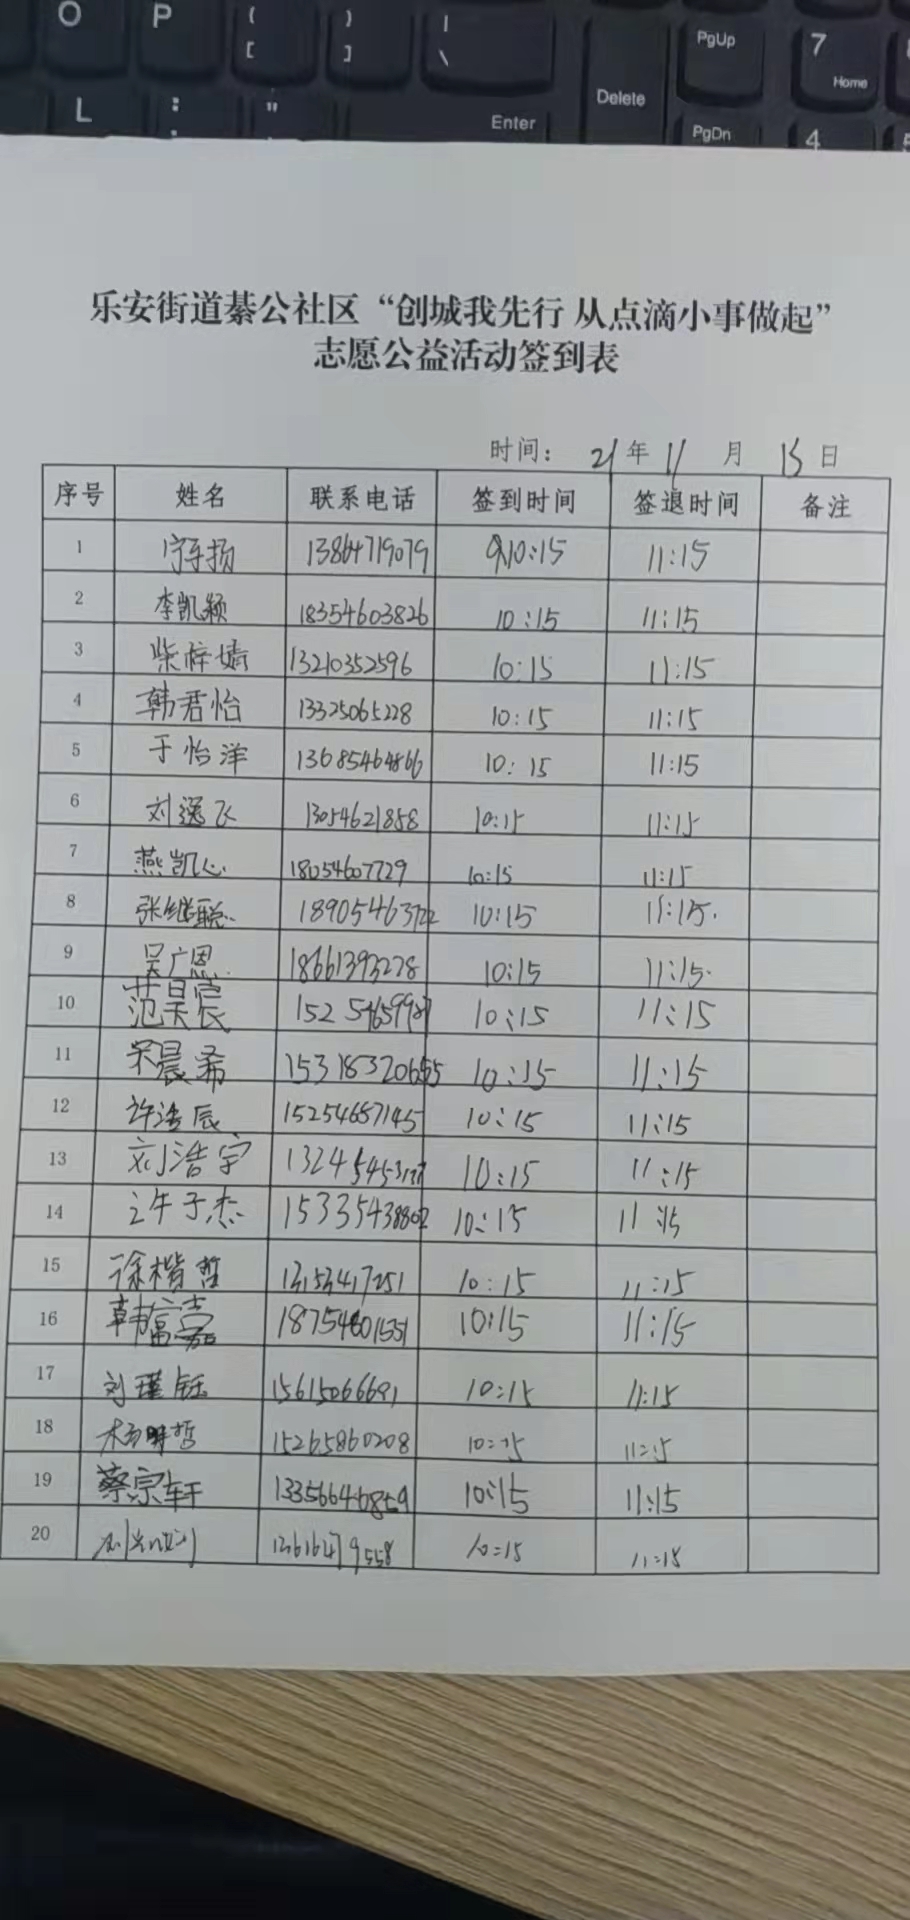 O P { [ } ] | \ PgUp 7 Home
L : ; " ' Enter Delete PgDn 4
乐安街道綦公社区“创城我先行 从点滴小事做起”
志愿公益活动签到表
时间： 21 年 11 月 15 日
序号 姓名 联系电话 签到时间 签退时间 备注
1 13864719079 10:15 11:15
2 李凯颖 18354603826 10:15 11:15
3 柴梓婧 13210352596 10:15 11:15
4 韩君怡 13325065228 10:15 11:15
5 于怡洋 13685464866 10:15 11:15
6 刘逸飞 13054621858 10:15 11:15
7 燕凯心 18054607729 10:15 11:15
8 张继聪 18905463722 10:15 11:15
9 吴广恩 18661393278 10:15 11:15
10 范昊宸 10:15 11:15
11 晨希 10:15 11:15
12 许浩辰 15254657145 10:15 11:15
13 刘浩宇 10:15 11:15
14 许子杰 10:15 11:15
15 徐楷哲 10:15 11:15
16 韩富嘉 10:15 11:15
17 刘瑾钰 15615066691 10:15 11:15
18 杨明哲 15265860208 10:15 11:15
19 蔡宗轩 13356646859 10:15 11:15
20 10:15 11:15